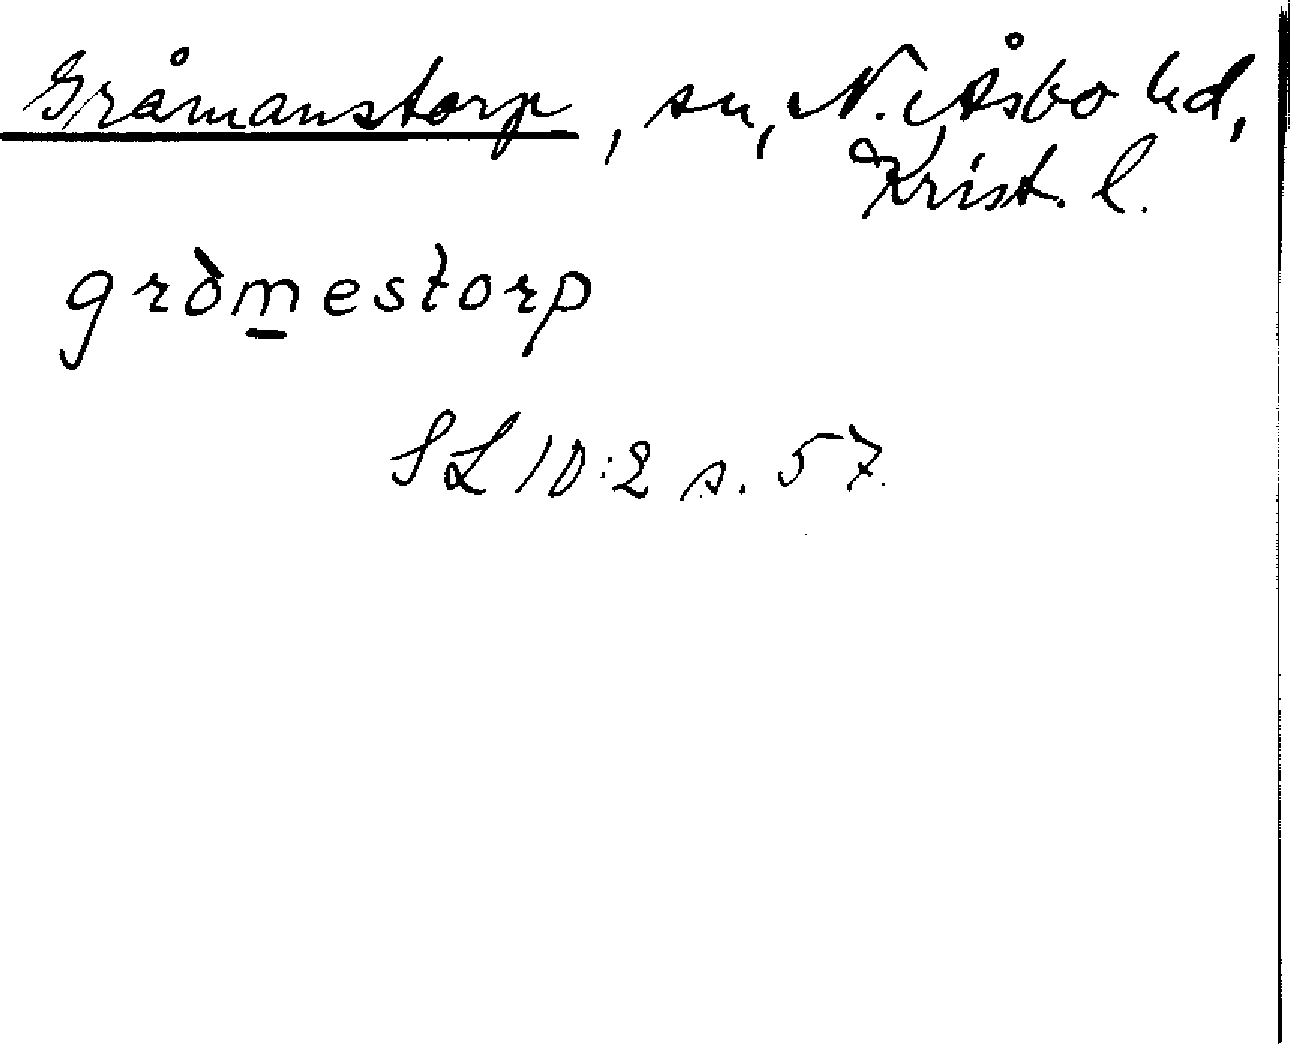 Gråmanstorp, sn, N. Åsbo hd,
Krist. l.
gròm̲estòrp
SL 10:2 s. 57.